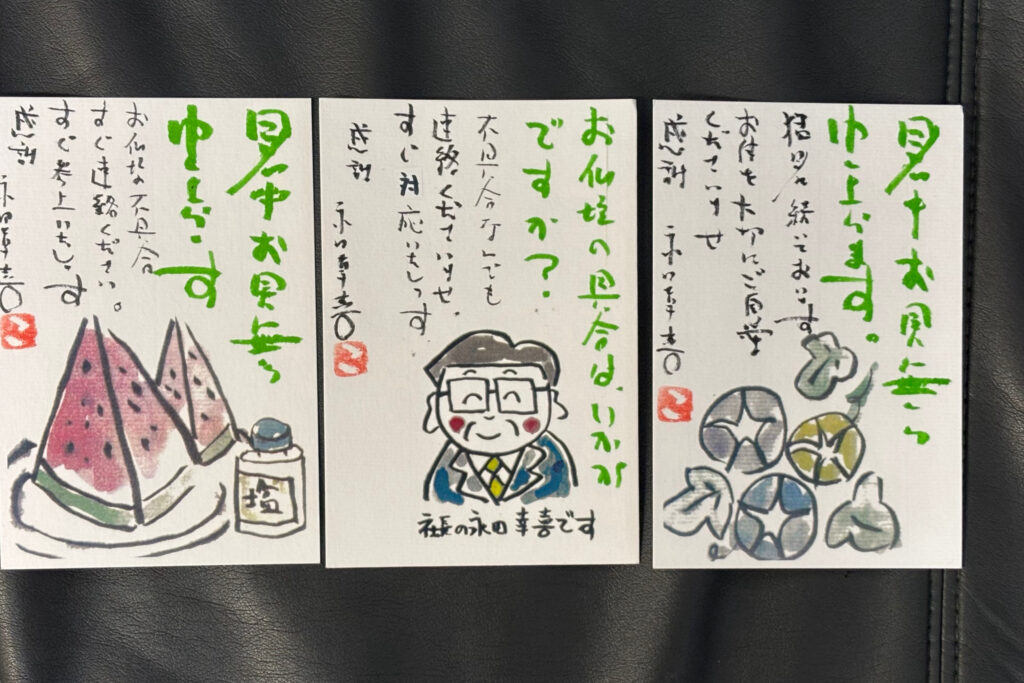 暑中お見舞い
申し上げます
お仏壇の不具合
すぐ連絡ください。
すぐ参上いたします
感謝 永田幸喜
塩
お仏壇の具合は、いかが
ですか?
不具合なんでも
連絡くださいませ。
すぐ対応いたします
感謝 永田幸喜
社長の永田幸喜です
暑中お見舞い
申し上げます。
猛暑が続いております
お体を大切にご自愛
くださいませ
感謝 永田幸喜